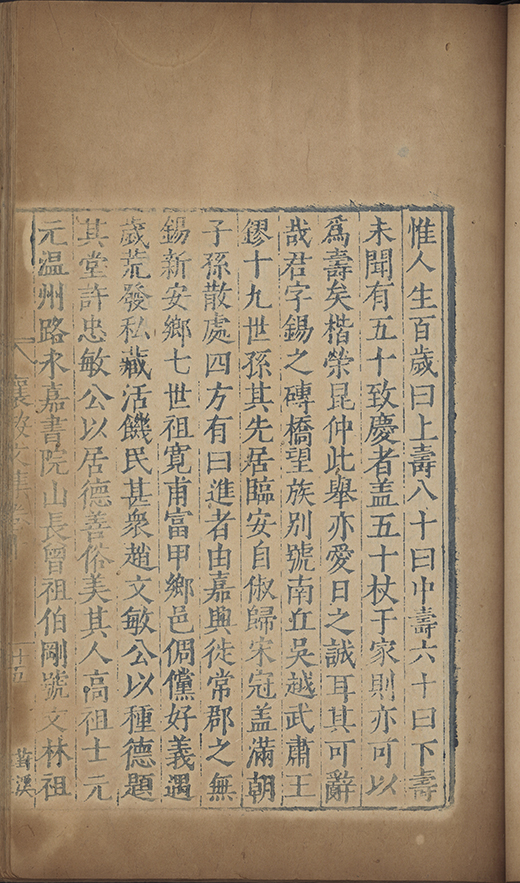 惟人生百歲曰上壽八十曰中壽六十曰下壽
未聞有五十致慶者盖五十杖于家則亦可以
爲壽矣楷榮昆仲此舉亦愛日之誠耳其可辭
哉君字錫之磚橋望族别號南丘吳越武肅王
鏐十九世孫其先居臨安自俶歸宋冠盖滿朝
子孫散處四方有曰進者由嘉興徙常郡之無
錫新安鄉七世祖寛甫富甲鄉邑倜儻好義遇
歲荒發私藏活饑民甚衆趙文敏公以種德題
其堂許忠敏公以居德善俗美其人高祖士元
元温州路永嘉書院山長曾祖伯剛號文林祖
襄毅文集卷
十五